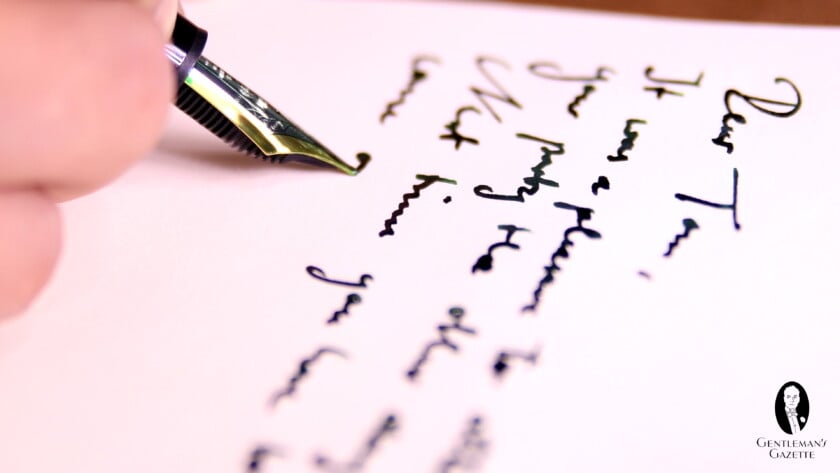 Dear Tom,
It was a pleasure to
your party the other
Next time you
come
GENTLEMAN'S
GAZETTE